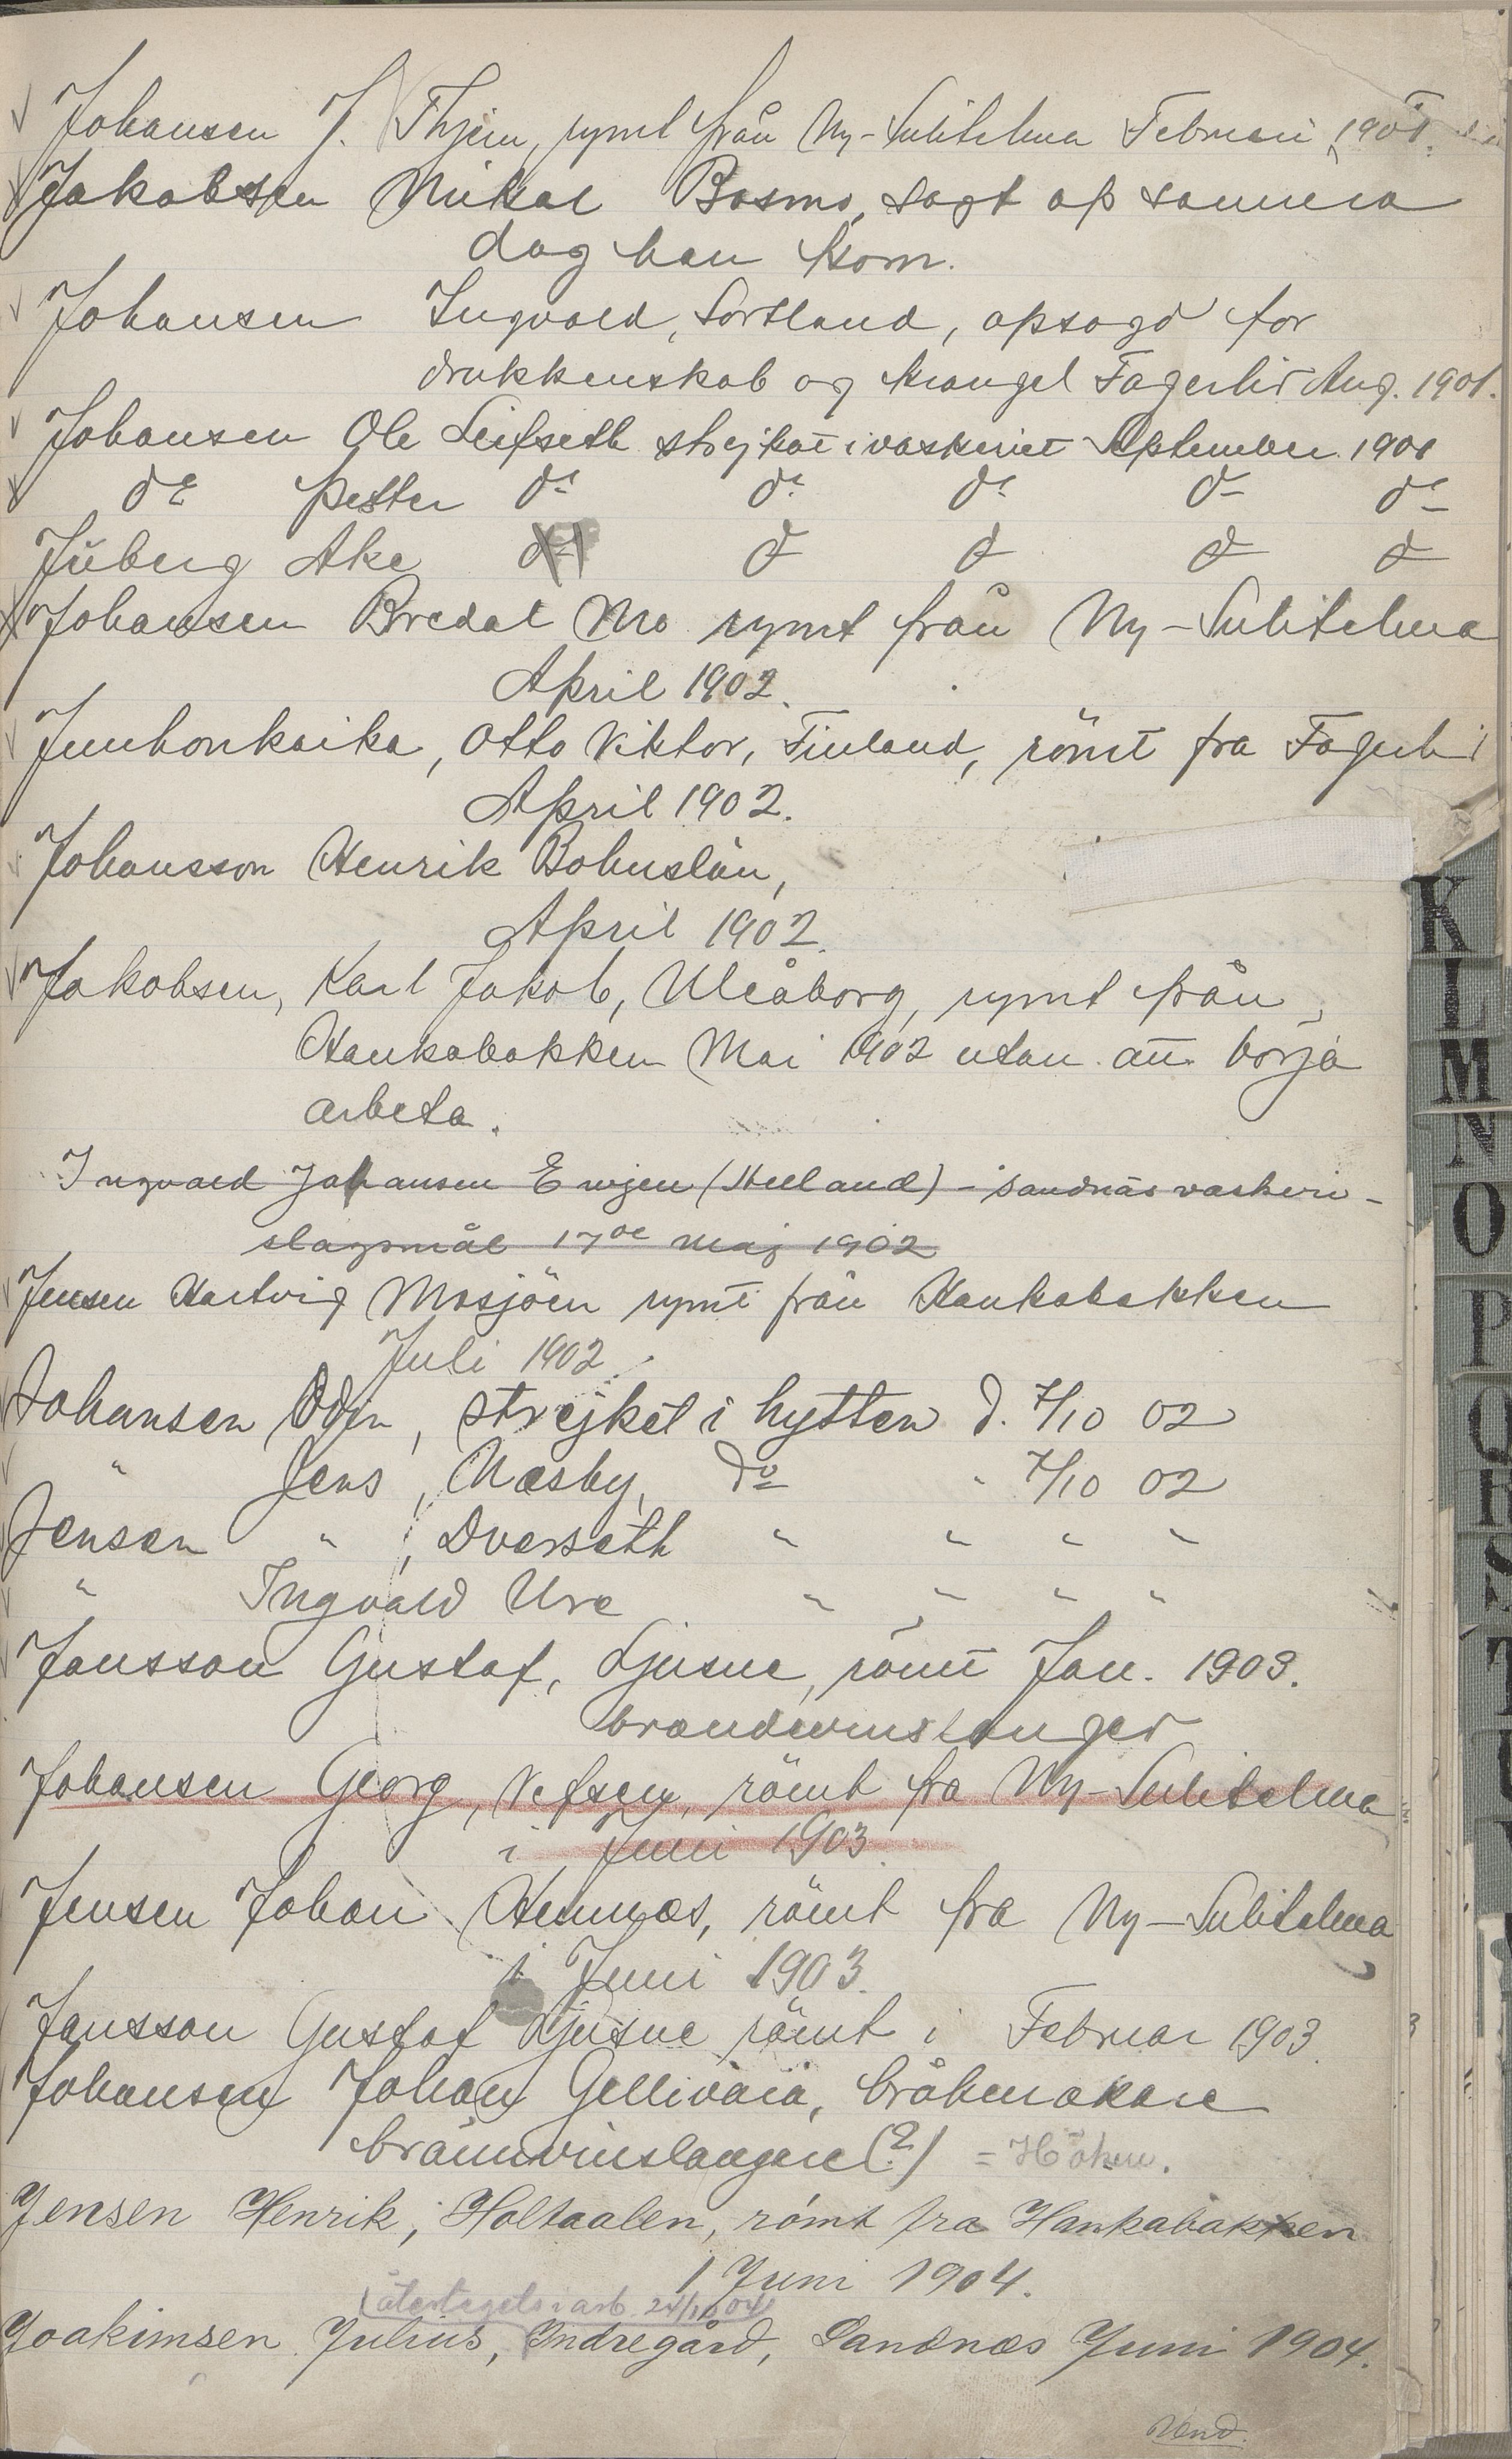 Johansen J. Thjem, rymt från Ny-Sulitelma Februari 1901.
Jakobsen Mikal Bosmo, sagt op samma
dag han kom.
Johansen Ingvald, Sortland, opsagd for
drukkenskab og krangel Fagerli Aug. 1901.
Johansen Ole Leifseth strejkat i vaskeriet September 1901
do Petter do do do do do
Juberg Ake do do do do
Johansen Bredal Mo rymt från Ny-Sulitelma
April 1902.
Junhonkaika, Otto Viktor, Finland, römt fra Fagerli
April 1902.
Johansson Henrik Bohuslän,
April 1902.
Jakobsen, Karl Jakob, Uleåborg, rymt från
Hankabakken Mai 1902 utan att börja
arbeta.
Ingvald Johansen Engen (Helland) - Sandnäs vaskeri -
slagsmål 17de maj 1902
Jensen Hartvig Mosjöen rymt från Hankabakken
Juli 1902.
Johansen Odin, strejket i hytten d. 7/10 02
" Jens, Næsby, do " 7/10 02
Jensen " , Dverseth " " " "
" Ingvald Ure " " " "
Jansson Gustaf, Ljusne, römt Jan. 1903.
brændevinslanger
Johansen Georg, Vefsen, römt fra Ny-Sulitelma
i Juni 1903.
Jensen Johan Hemnæs, römt fra Ny-Sulitelma
i Juni 1903.
Jansson Gustaf Ljusne römt i Februar 1903.
Johansen Johan Gellivara, bråkmakare
brännvinslangare (?) = Höken.
Jensen Henrik, Holtaalen, römt fra Hankabakken
1 Juni 1904.
(återtagets i arb. 24/11 04)
Joakimsen Julius, Indregård, Sandnæs Juni 1904.
Vend.
K
L
M
N
O
P
Q
R
S
T
U